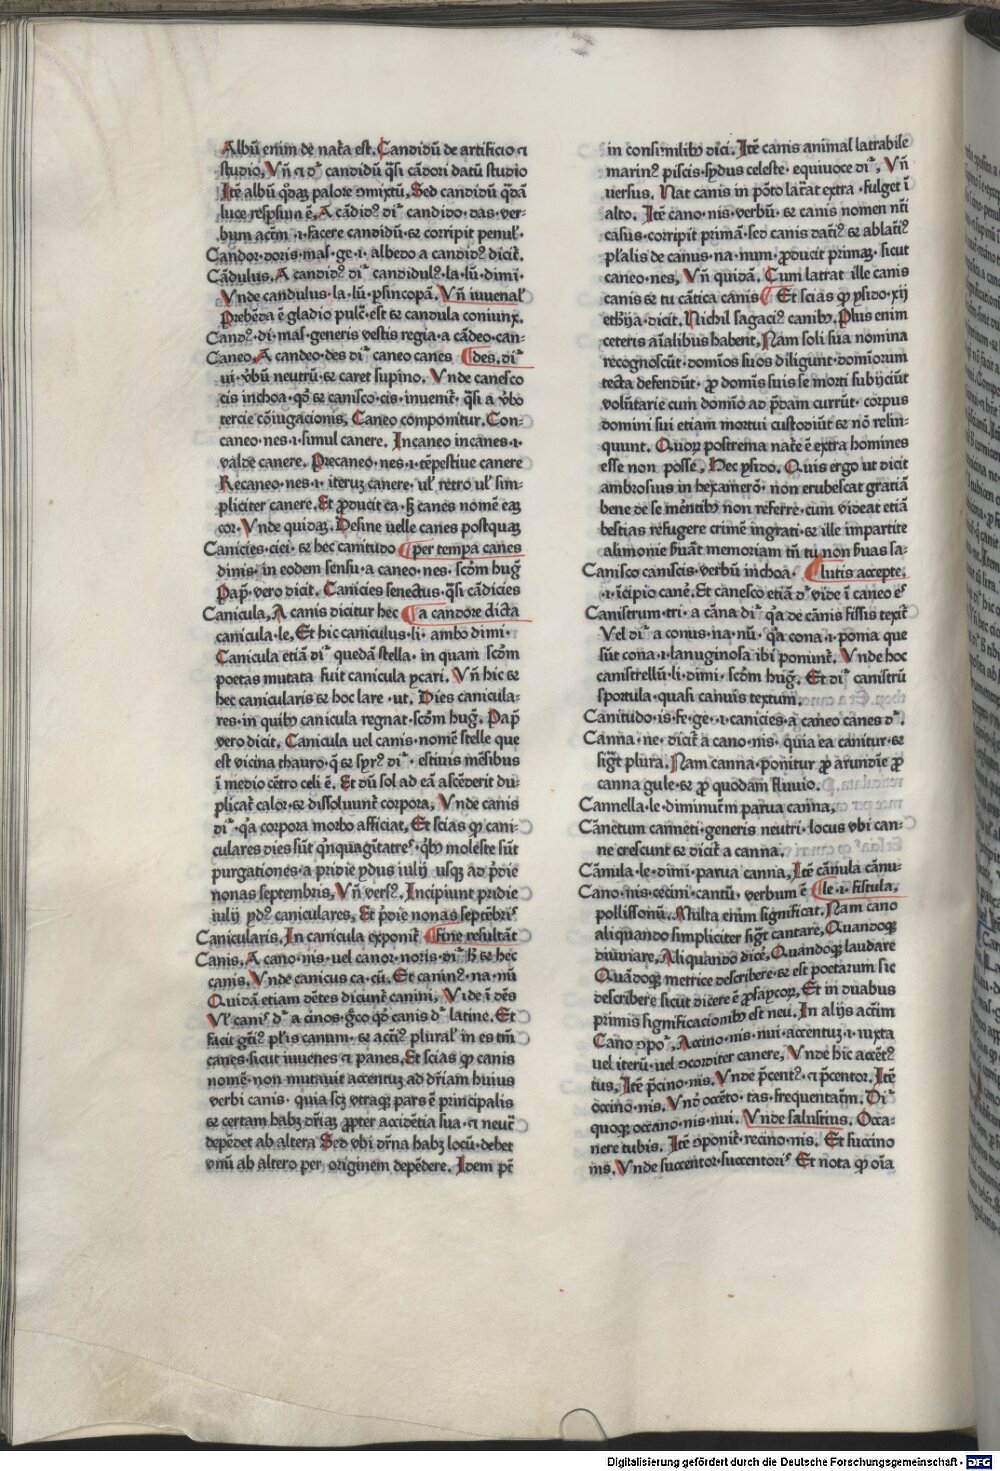 Albū enim de nat̄a est. Candidū de artificio ⁊
studio, Vn̄ ⁊ dr̄ candidū q̄si cādori datū studio
Itē albū q̄dā palore ↄmixtū. Sed candidū q̄dā
luce resp̄sum ē, A cādidꝰ dir̄ candido·das·ver-
bum act̄m·ı·facere candidū·et corripit penul̄·
Candor·doris·mas·ge·i·albedo a candidꝰ dicit̄.
Cādulus. A candidꝰ dir̄ candidulꝰ·la·lū·dimi·
Vnde candulus·la·lū·p sincopā. Vn̄ iuuenal̄
Prebēda ē gladio pulc̄·est et candula coniunx.
Candꝰ·di·mas·generis vestis regia·a cādeo·can-
Caneo. A candeo·des dir̄ caneo canes ¶des. dir̄
ui·v̄bū neutrū·et caret supino. Vnde canesco
cis inchoa·qd̓ et canisco·cis·inuenit̄·q̄si a v̄bo
tercie cōiugacionis. Caneo componitur. Con-
caneo·nes·ı·simul canere. Incaneo incanes·ı·
valde canere. Precaneo·nes·ı·tēpestiue canere
Recaneo·nes·ı·iteruꝫ canere·ul̄ retro ul̄ sim-
pliciter canere. Et ꝓducit ca·ꝗ canes nomē eaꝫ
cor·Vnde quidaꝫ. Desine uelle canes postquaꝫ
Canicies·ciei·et hec canitudo ¶per tempa canes
dinis·in eodem sensu·a caneo·nes·scd̓m hug̓
Pap̄·vero dicit. Canicies senectus·q̄si cādicies
Canicula, A canis dicitur hec ¶a candore dicta
canicula·le, Et hic caniculus·li·ambo dimi·
Canicula etiā dir̄ quedā stella·in quam scd̓m
poetas mutata fuit canicula ycari. Vn̄ hic et
hec canicularis et hoc lare·ut. Dies canicula-
res·in quibꝫ canicula regnat·scd̓m hug̓. Pap̄
vero dicit. Canicula uel canis·nomē stelle que
est vicina thauro·q̄ et syrꝰ dir̄·estiuis mēsibus
ī medio cētro celi ē. Et dū sol ad eā ascēderit du-
plicat̄ calor·et dissoluunt̄ corpora, Vnde canis
dir̄·q̄a corpora morbo afficiat, Et scias qꝫ cani-
culares dies sūt qn̄quagītatreˢ·qb̓ꝫ moleste sūt
purgationes·a pridie ydus iulij usqꝫ ad p̄die
nonas septembris, Vn̄ versꝰ. Incipiunt pridie
iulij ydꝰ caniculares, Et p̄die nonas septēbrıˢ
Canicularis. In canicula exponit̄ ¶fine resultāt
Canis, A cano·nis·uel canor·noris·dir̄ h̄ et hec
canis. Vnde canicus ca·cū. Et caninꝰ·na·nū
Quidā etiam dētes dicunt̄ canini, Vide ī dēs
Vl̄ caniˢ dr̄ a cinos·g̓co qd̓ canis dr̄ latine. Et
facit gt̄iꝰ pl̄is canum·et act̄iꝰ plural̄ in es tm̄
canes·sicut iuuenes ⁊ panes. Et scias qꝫ canis
nomē·non mutauit accentuꝫ ad dr̄iam huius
verbi canis·quia scꝫ vtraqꝫ pars ē principalis
et certam habꝫ dr̄iaꝫ ꝓpter accidētia sua·⁊ neut̄
depēdet ab altera Sed vbi dr̄na habꝫ locū·debet
vnū ab altero per originem depēdere. Idem pt̄
in consimilibꝫ dici. Itē canis animal latrabile
marinꝰ piscis·sydus celeste·equiuoce dir̄, Vn̄
uersus. Nat canis in pōto lat̄at extra·fulget ī
alto. Itē cano·nis·verbū·et canis nomen nt̄i
casus·corripit primā·sed canis dat̄iꝰ et ablat̄iꝰ
pl̄alis de canus·na·num·ꝓducit primaꝫ·sicut
caneo·nes, Vn̄ quidā. Cum latrat ille canis
canis et tu cātica canis ¶Et scias qꝫ ysido·xij
ethija·dicit. Nichil sagaciꝰ canibꝫ. Plus enim
ceteris aīalibus habent, Nam soli sua nomina
recognoscūt·domīos suos diligunt·domīorum
tecta defendūt·ꝓ domīs suis se morti subijciūt
volūtarie cum domīo ad p̄dam currūt·corpus
domini sui etiam mortui custodiūt et nō relin-
quunt. Quoꝝ postrema nat̄e ē extra homines
esse non posse. Hec ysido. Quis ergo ut dicit
ambrosius in hexamerō·non erubescat gratiā
bene de se mētibꝫ non referre·cum videat etiā
bestias refugere crimē ingrati·et ille impartite
alimonie s̄uāt memoriam tn̄ tu non s̄uas sa-
Canisco caniscis·verbū inchoa· ¶lutis accepte.
·ı·īcipio canē. Et canesco etiā dr̄ vide ī caneo eˢ
Canistrum·tri·a cāna dir̄ q̄a de cānis fissis texit̄
Vel dir̄ a conus·na·nū·q̄a cona·ı·poma que
sūt cona·ı·lanuginosa ibi ponunt̄. Vnde hoc
canistrellū·li·dimi·scd̓m hug̓. Et dir̄ canistrū
sportula·quasi cannis textum.
Canitudo·is·fe·ge·ı·canicies·a caneo canes dr̄.
Canna·ne·dicit̄ a cano·nis·quia ea canitur·et
sig̓t plura. Nam canna·ponitur ꝓ arundīe ꝓ
canna gule·et ꝓ quodam fluuio.
Cannella·le·diminut̄m parua canna,
Cānetum canneti·generis neutri·locus vbi can-
ne crescunt et dicit̄ a canna.
Cānula·le·dimi·parua canna, Itē cānula cānu-
Cano·nis·cecini·cantū·verbum ē ¶le·ı·fistula,
pollissonū. Multa enim significat. Nam cano
aliquando simpliciter sig̓t cantare, Quandoqꝫ
diuinare, Aliquando dicē, Quandoqꝫ laudare
Quādoqꝫ metrice describere·et est poetarum sic
describere sicut dicere ē ꝓsaycoꝝ, Et in duabus
primis significacionibꝫ est neu. In alijs act̄im
Cano ↄpoˢ, Accino·nis·nui·accentuꝫ·ı·iuxta
uel iterū·uel ↄcorditer canere, Vnde hic accētꝰ
tus, Itē p̄cino·nis. Vnde p̄centꝰ·⁊ p̄centor. Itē
occino·nis. Vnd̓ occēto·tas·frequentat̄m. Dir̄
quoqꝫ occano·nis·nui. Vnde salustius. Occa-
nere tubis. Itē ↄponit̄ recino·nis. Et succino
nis. Vnde succentor·succentorıˢ Et nota qꝫ oīa
Digitalisierung gefördert durch die Deutsche Forschungsgemeinschaft - DFG